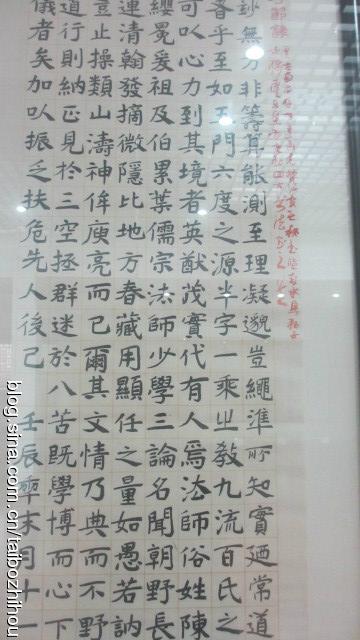 妙無方非籌算能測至理凝邈豈繩準所知實廼常道
者乎至如五門六度之源半字一乘之教九流百氏之
可以心力到其境者英猷茂實代有人焉法師俗姓陳
纓冕爰祖及伯累葉儒宗法師少學三論名聞朝野長
連清翰發摘微隱比地方春藏用顯任之量如愚若訥
豈止操類山濤神侔庾亮而已爾其文情乃典而不野
道行則納正見於三空拯群迷於八苦既學博而心下
儀者矣加以振乏扶危先人後己 壬辰 末月十一
blog.sina.com.cn/taibozhihou